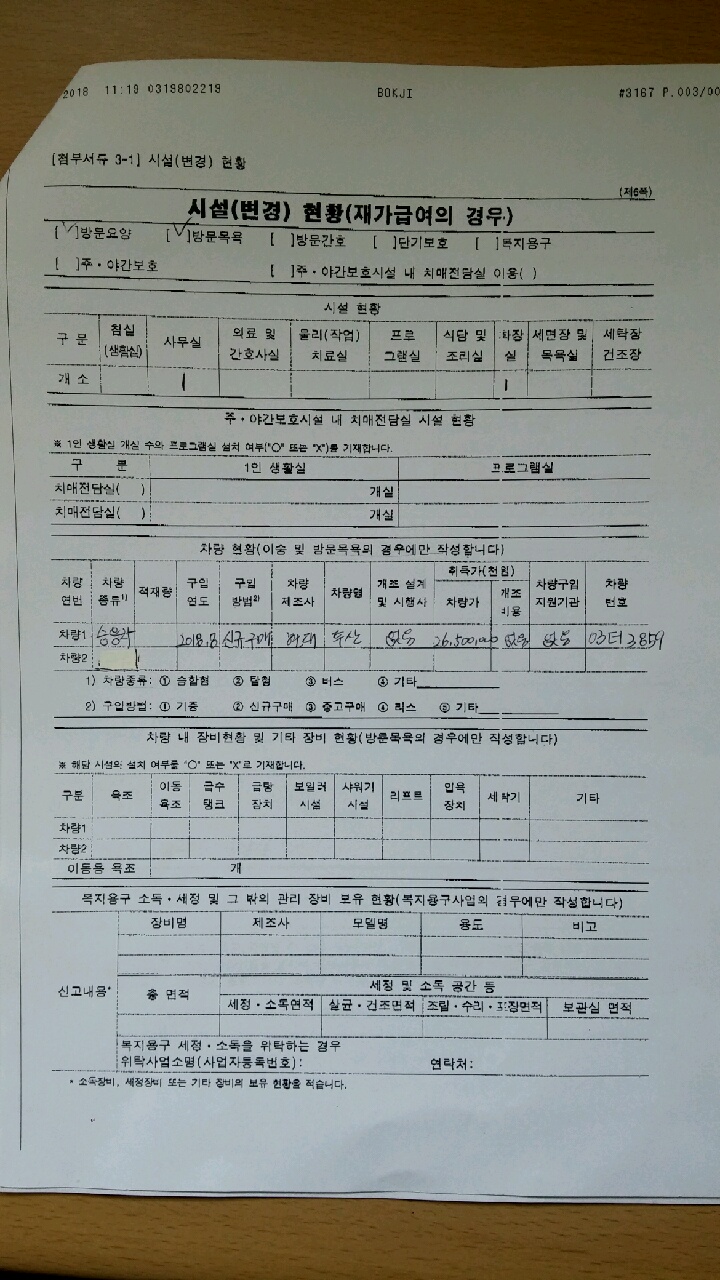 2018 11:19 0319802219 BOKJI #3167 P.003/00
[첨부서류 3-1] 시설(변경) 현황
(제6쪽)
시설(변경) 현황(재가급여의 경우)
[✓]방문요양 [✓]방문목욕 [ ]방문간호 [ ]단기보호 [ ]복지용구
[ ]주·야간보호 [ ]주·야간보호시설 내 치매전담실 이용( )
시설 현황
구 분 침실 (생활실) 사무실 의료 및 간호사실 물리(작업) 치료실 프로 그램실 식당 및 조리실 화장 실 세면장 및 목욕실 세탁장 건조장
개 소 1 1
주·야간보호시설 내 치매전담실 시설 현황
※ 1인 생활실 개실 수와 프로그램실 설치 여부("○" 또는 "X")를 기재합니다.
구 분 1인 생활실 프로그램실
치매전담실( ) 개실
치매전담실( ) 개실
차량 현황(이송 및 방문목욕의 경우에만 작성합니다)
차량 연번 차량 종류1) 적재량 구입 연도 구입 방법2) 차량 제조사 차량명 개조 설계 및 시행사 취득가(천원) 차량가 개조 비용 차량구입 지원기관 차량 번호
차량1 승용차 2018.8 신규구매 현대 투산 없음 26,500,000 없음 없음 03터2859
차량2
1) 차량종류: ① 승합형 ② 탑형 ③ 버스 ④ 기타
2) 구입방법: ① 기증 ② 신규구매 ③ 중고구매 ④ 리스 ⑤ 기타
차량 내 장비현황 및 기타 장비 현황(방문목욕의 경우에만 작성합니다)
※ 해당 시설의 설치 여부를 "○" 또는 "X"로 기재합니다.
구분 욕조 이동 욕조 급수 탱크 급탕 장치 보일러 시설 샤워기 시설 리프트 입욕 장치 세탁기 기타
차량1
차량2
이동용 욕조 개
복지용구 소독·세정 및 그 밖의 관리 장비 보유 현황(복지용구사업의 경우에만 작성합니다)
신고내용* 장비명 제조사 모델명 용도 비고
총 면적 세정 및 소독 공간 등
세정·소독면적 살균·건조면적 조립·수리·포장면적 보관실 면적
복지용구 세정·소독을 위탁하는 경우
위탁사업소명(사업자등록번호): 연락처:
* 소독장비, 세정장비 또는 기타 장비의 보유 현황을 적습니다.